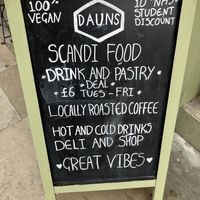 100%
VEGAN
DAUNS
10% NHS
STUDENT
DISCOUNT
SCANDI FOOD
DRINK AND PASTRY
DEAL
£6 TUES - FRI
LOCALLY ROASTED COFFEE
HOT AND COLD DRINKS
DELI AND SHOP
♥GREAT VIBES♥